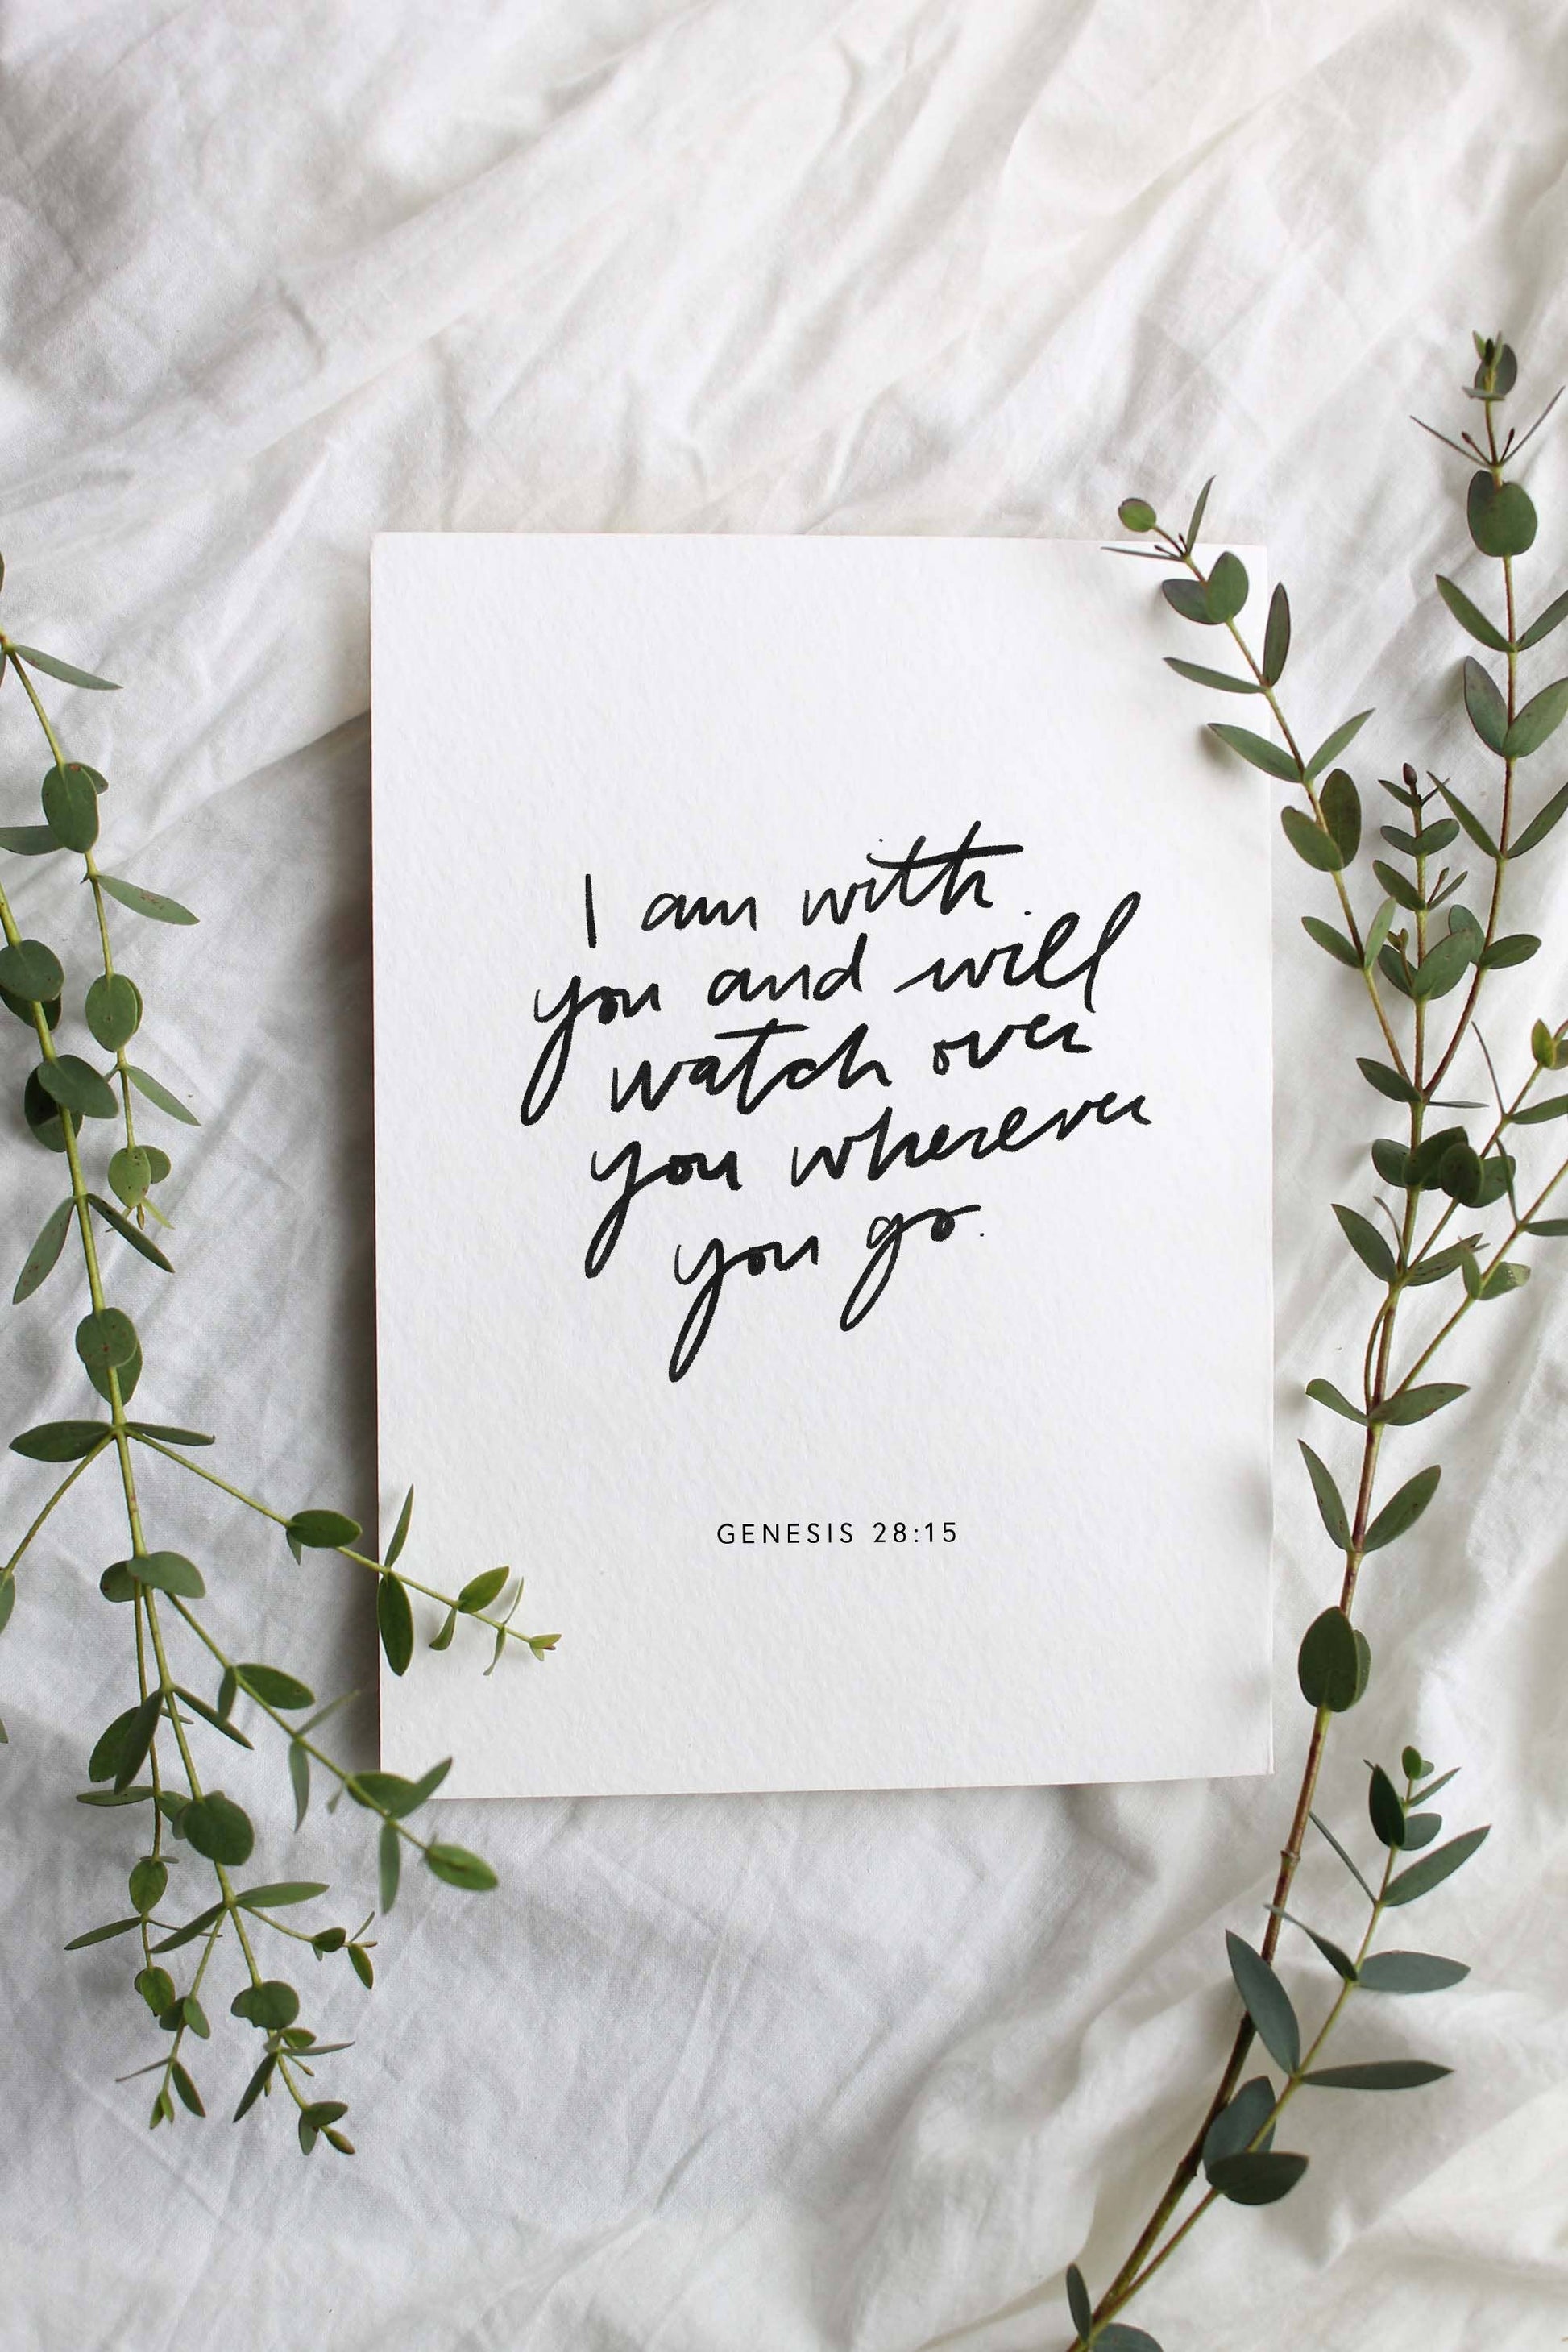 I am with
you and will
watch over
you wherever
you go.
GENESIS 28:15